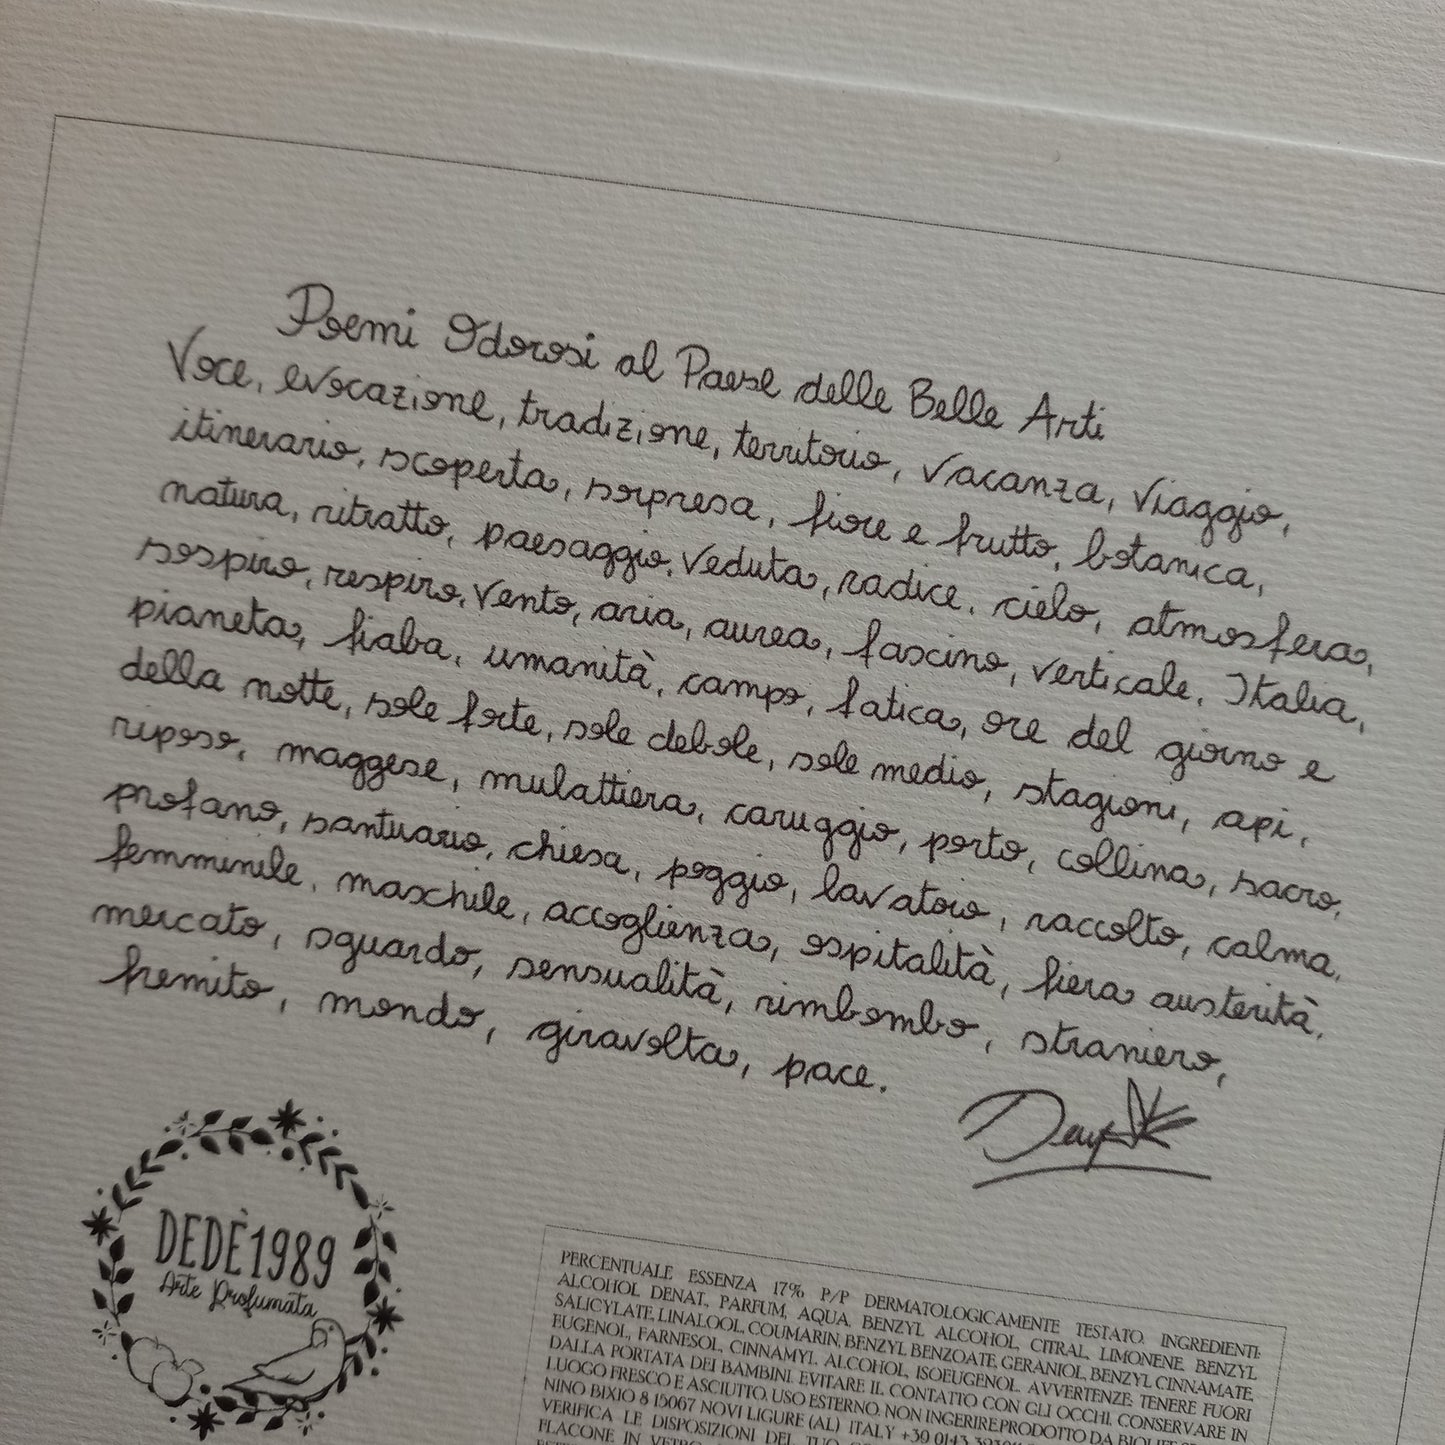 Poemi Odorosi al Paese delle Belle Arti
Voce, evocazione, tradizione, territorio, vacanza, viaggio,
itinerario, scoperta, sorpresa, fiore e frutto, botanica,
natura, ritratto, paesaggio, veduta, radice, cielo, atmosfera,
sospiro, respiro, vento, aria, aurea, fascino, verticale, Italia,
pianeta, fiaba, umanità, campo, fatica, ore del giorno e
della notte, sole forte, sole debole, sole medio, stagioni, api,
riposo, maggese, mulattiera, caruggio, porto, collina, sacro,
profano, santuario, chiesa, poggio, lavatoio, raccolto, calma,
femminile, maschile, accoglienza, ospitalità, fiera austerità,
mercato, sguardo, sensualità, rimbombo, straniero,
fremito, mondo, giravolta, pace.
DEDÈ1989
Arte Profumata
PERCENTUALE ESSENZA 17% P/P DERMATOLOGICAMENTE TESTATO. INGREDIENTI:
ALCOHOL DENAT., PARFUM, AQUA, BENZYL ALCOHOL, CITRAL, LIMONENE, BENZYL
SALICYLATE, LINALOOL, COUMARIN, BENZYL BENZOATE, GERANIOL, BENZYL CINNAMATE,
EUGENOL, FARNESOL, CINNAMYL ALCOHOL, ISOEUGENOL. AVVERTENZE: TENERE FUORI
DALLA PORTATA DEI BAMBINI. EVITARE IL CONTATTO CON GLI OCCHI. CONSERVARE IN
LUOGO FRESCO E ASCIUTTO. USO ESTERNO. NON INGERIRE. PRODOTTO DA
NINO BIXIO 8 15067 NOVI LIGURE (AL) ITALY +39 0143
VERIFICA LE DISPOSIZIONI DEL TUO
FLACONE IN VETRO